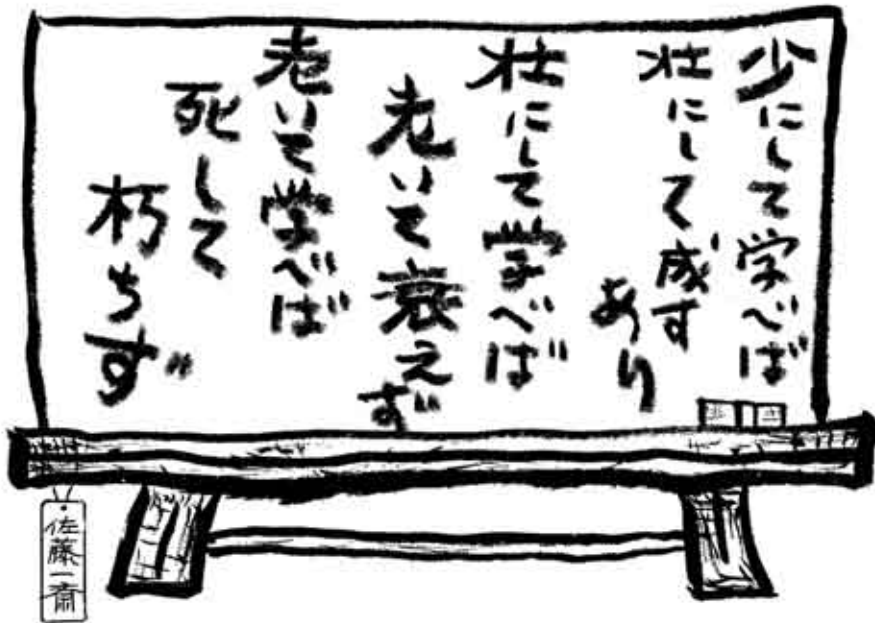 少にして学べば
壮にして成す
あり
壮にして学べば
老いて衰えず
老いて学べば
死して
朽ちず
佐藤一齋